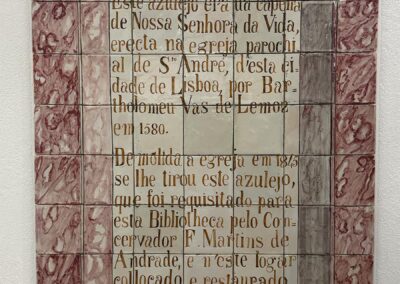 Este azulejo era da capella
de Nossa Senhora da Vida,
erecta na egreja parochi
al de S.to André, d'esta ci
dade de Lisboa, por Bar
tholomeu Vas de Lemoz
em 1580.
De molida a egreja em 1845
se lhe tirou este azulejo,
que foi requisitado para
esta Bibliotheca pelo Con
cervador F. Martins de
Andrade, e n'este logar
collocado e restaurado